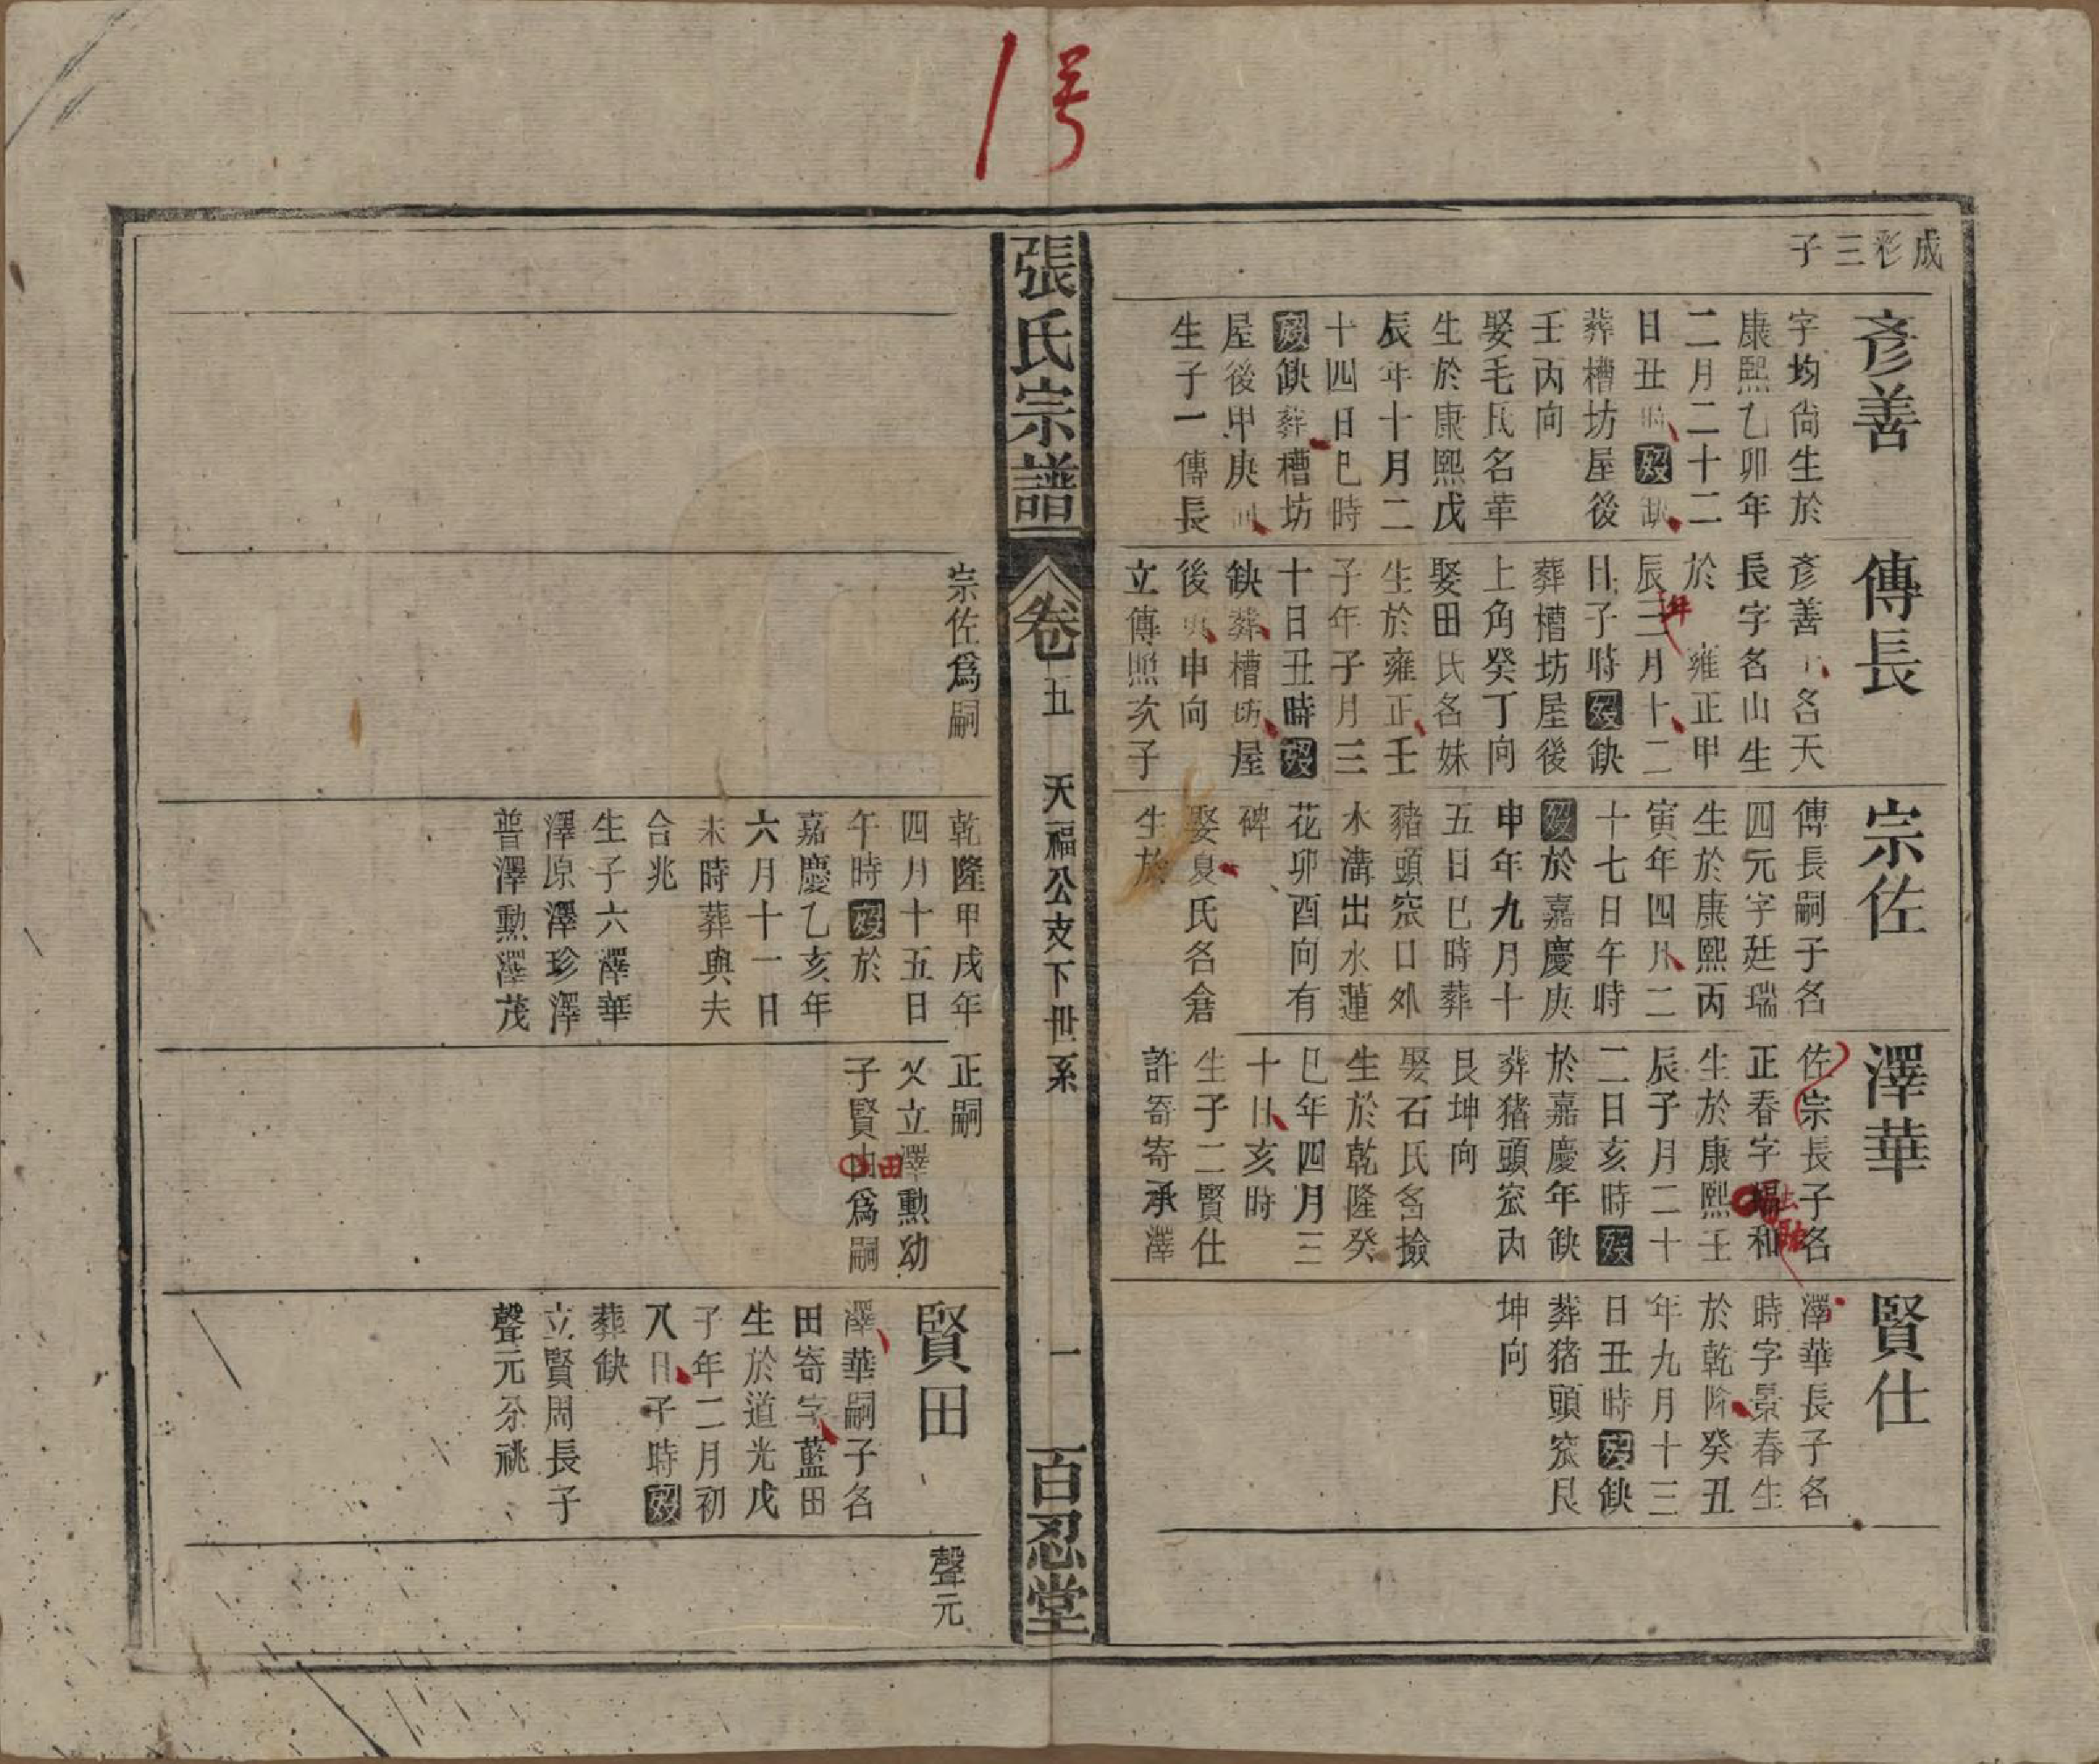 1号
成彩三子
彥善
字均尙生於
康熙乙卯年
二月二十二
日丑時歿缺
葬槽坊屋後
壬丙向
娶毛氏名華
生於康熙戊
辰年十月二
十四日巳時
歿缺葬槽坊
屋後甲庚向
生子一傳長
傳長
彥善子名天
長字名山生
於 雍正甲
辰三月十二
年
日子時歿缺
葬槽坊屋後
上角癸丁向
娶田氏名妹
生於雍正壬
子年子月三
十日丑時歿
缺葬槽坊屋
後 申向
立傳照次子
宗佐
傳長嗣子名
四元字廷瑞
生於康熙丙
寅年四月二
十七日午時
歿於嘉慶庚
申年九月十
五日巳時葬
豬頭窊口外
水溝出水蓮
花卯酉向有
碑
娶夏氏名倉
生於
澤華
佐宗長子名
正春字 和
生於康熙壬
辰子月二十
二日亥時歿
於嘉慶年缺
葬猪頭窊內
艮坤向
娶石氏名撿
生於乾隆癸
巳年四月三
十日亥時
生子二賢仕
許寄寄承澤
賢仕
澤華長子名
時字景春生
於乾隆癸丑
年九月十三
日丑時歿缺
葬猪頭窊艮
坤向
張氏宗譜
卷五 天福公支下世系 一 百忍堂
宗佐爲嗣
乾隆甲戌年
四月十五日
午時歿於
嘉慶乙亥年
六月十一日
未時葬與夫
合兆
生子六澤華
澤原澤珍澤
普澤勳澤茂
正嗣
父立澤勳幼
子賢由爲嗣
田
賢田
澤華嗣子名
田寄字藍田
生於道光戊
子年二月初
八日子時歿
葬缺
立賢周長子
聲元爲祧
聲元